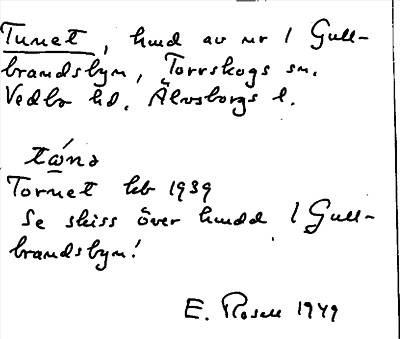 Tunet, hmd av nr 1 Gull-
brandsbyn, Torrskogs sn.
Vedbo hd. Älvsborgs l.
tώnə
Tornet kb 1939
Se skiss över hmdd 1 Gull-
brandsbyn!
E. Rosell 1949